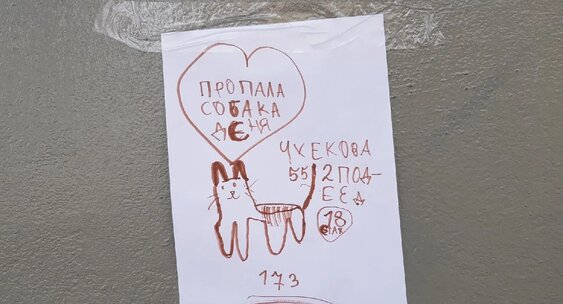 ПРОПАЛА
СОБАКА
ДЕНЯ
ЧХЕКОВА
55 2ПОД-
ЕЕД
18
ЕТАЖ
173